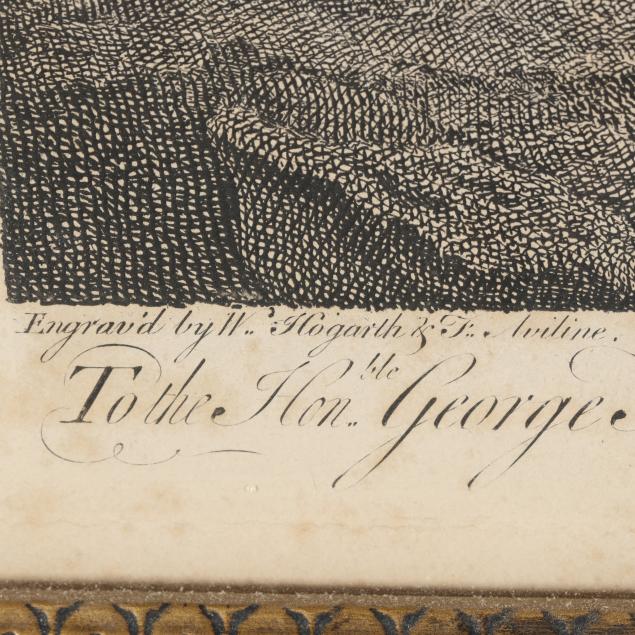 Engrav'd by W.. Hogarth & F.. Aviline.
To the Hon..ble George